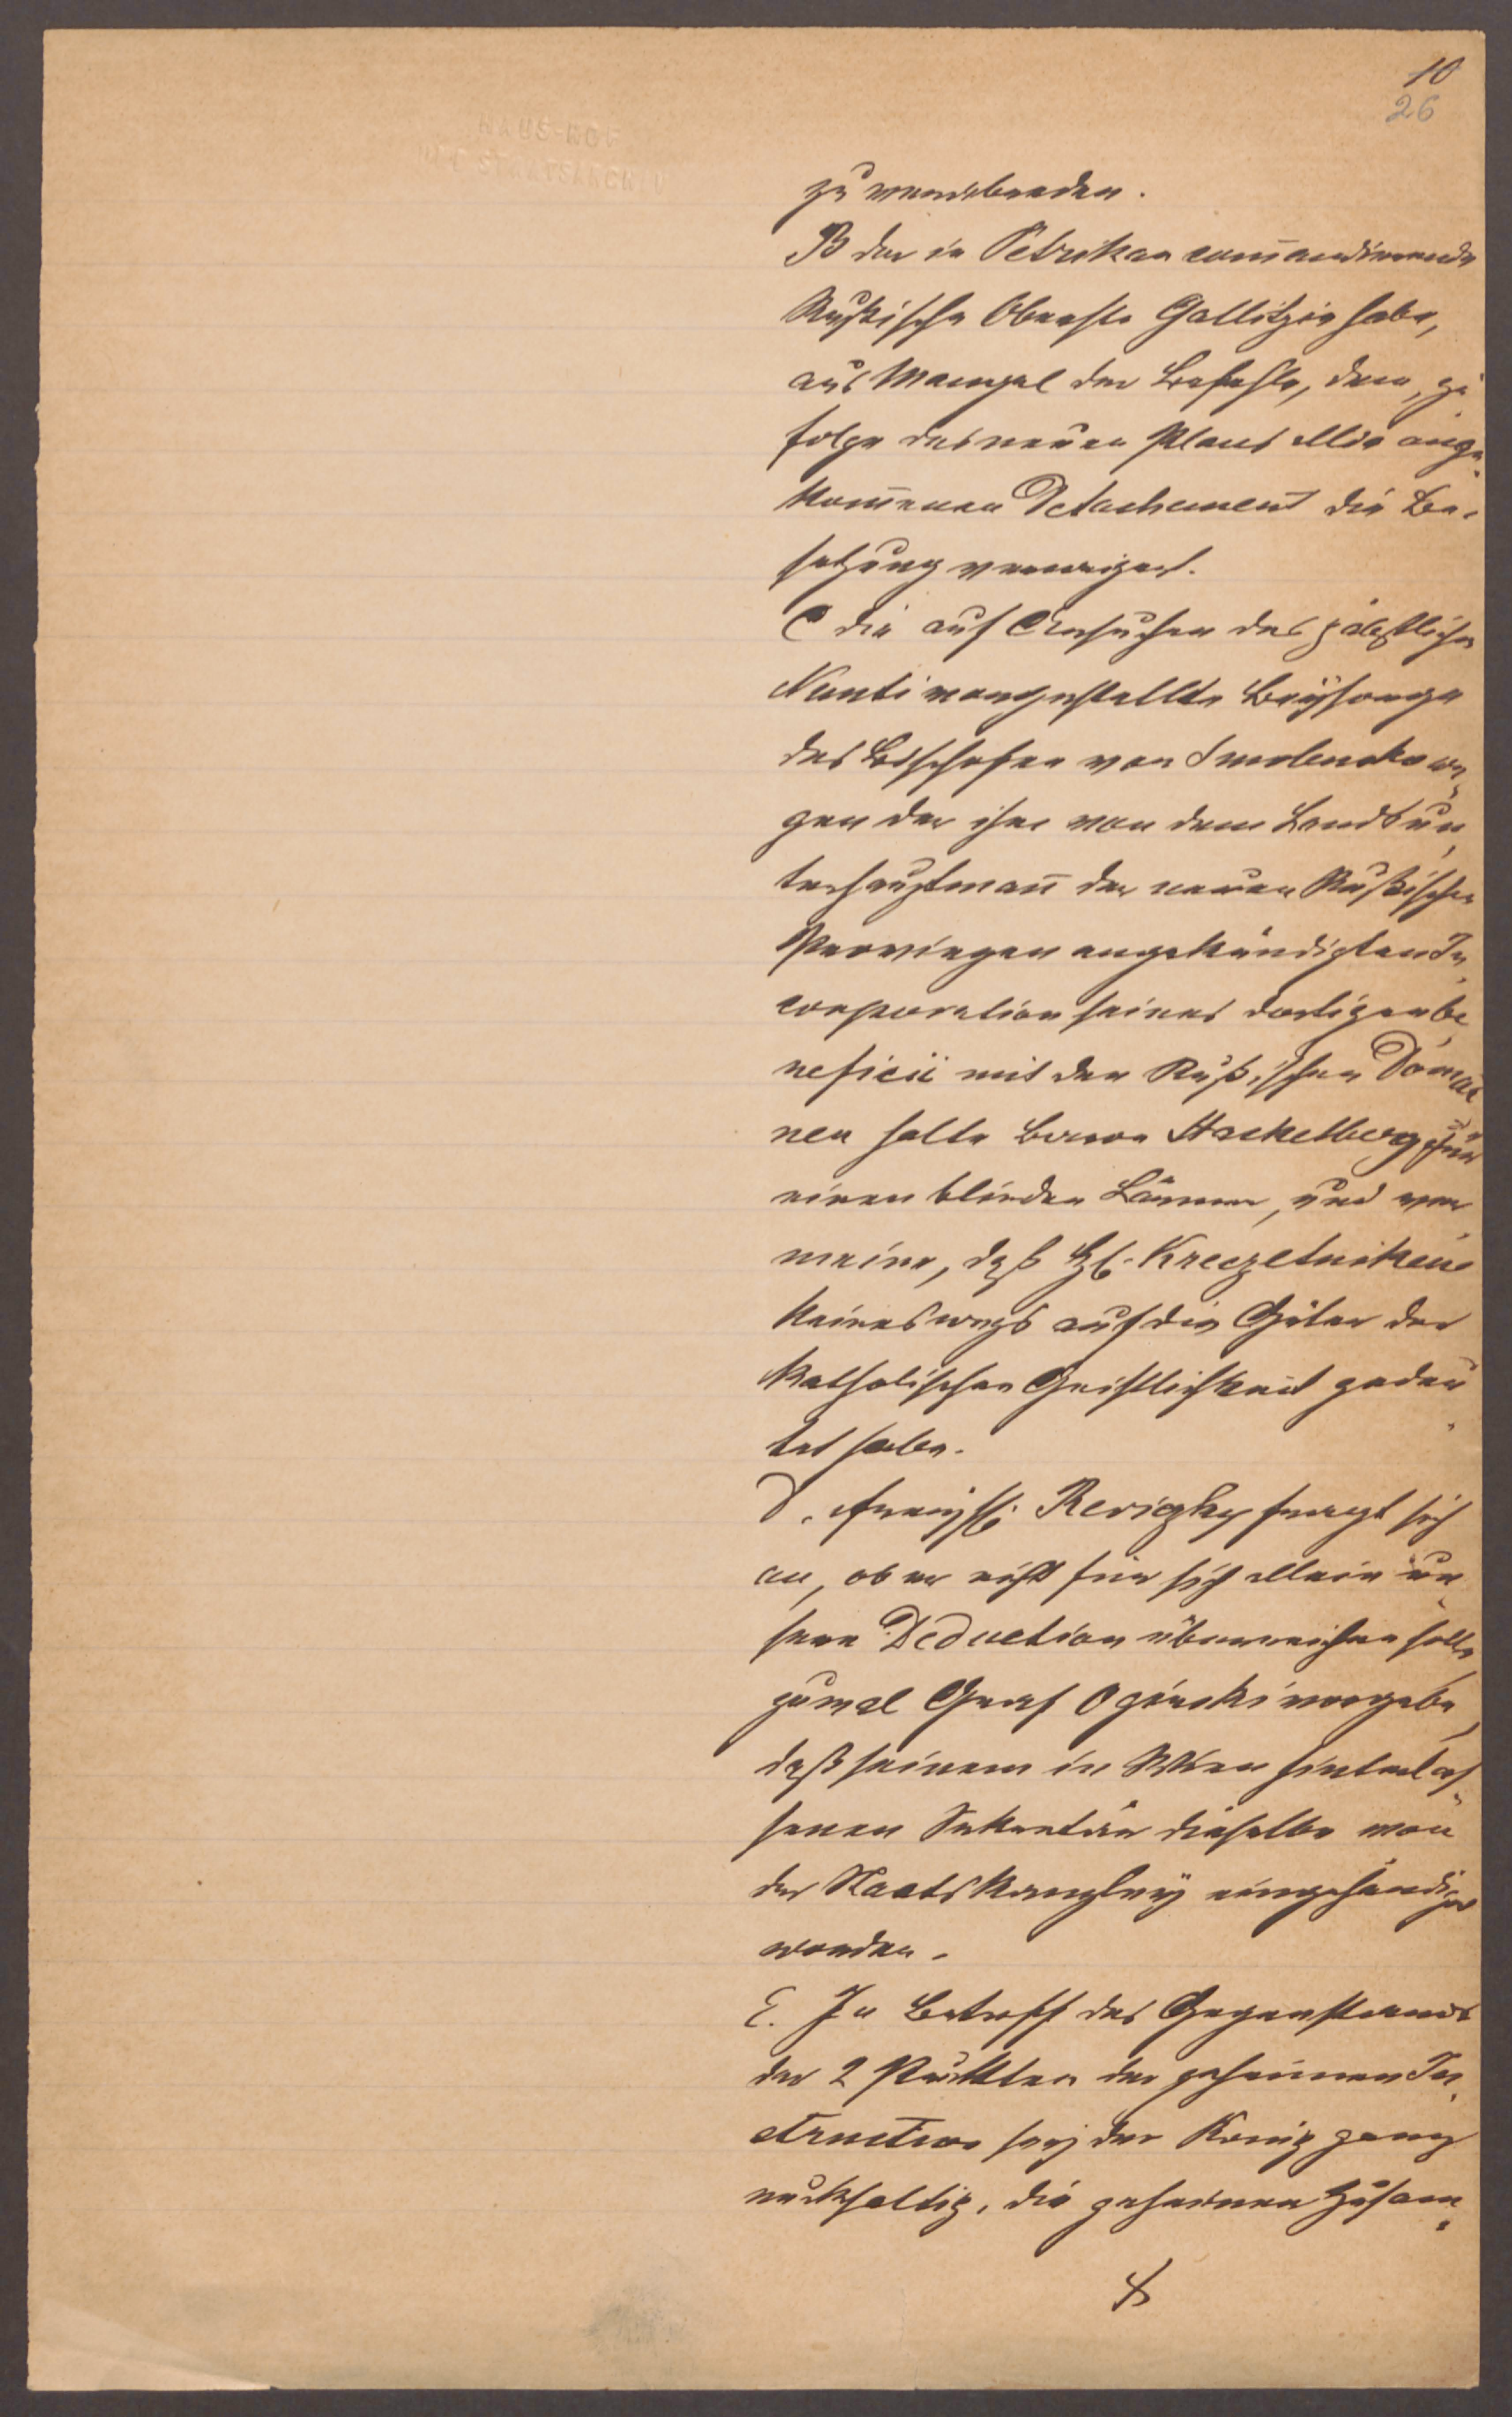 10
26
HAUS-HOF
U. STAATSARCHIV
zu verwenden.
B der in Petrikau com̄andirende
Rußische Oberste Gallitzin habe,
aus Mangel der Befehle, dem, zu
folge des neuen Plans allda ange
kom̄enen Detachement die Be-
setzung verweigert.
C die auf Ersuchen des päbstlichen
Nunti vorgestellte Beysorge
des Bischofen von Smolensko we
gen der ihm von dem Landsun
terhauptman̄ der neuen Rußischen
Provinzen angekündigten In
corporation seines dortigen be
neficii mit den Rußischen Domai
nen halte Baron Stackelberg für
einen blinden Lärmen, und ver
meine, daß H. Kreczetnikew
keineswegs auf die Güter der
Katholischen Geistlichkeit gedeu
tet habe.
D. Freyh. Reviczky fragt sich
an, ob er nicht für sich allein un
sere Deduction überreichen solle
zumal Graf Oginski vorgebe,
daß seinem in Wien hinterlas
senen Sekretär dieselbe von
der Staatskanzley eingehändiget
worden.
E. In Betreff des Gegenstands
der 2 Puncten der geheimen In
struction sey der König ganz
rückhaltig, die geheimen Zusam